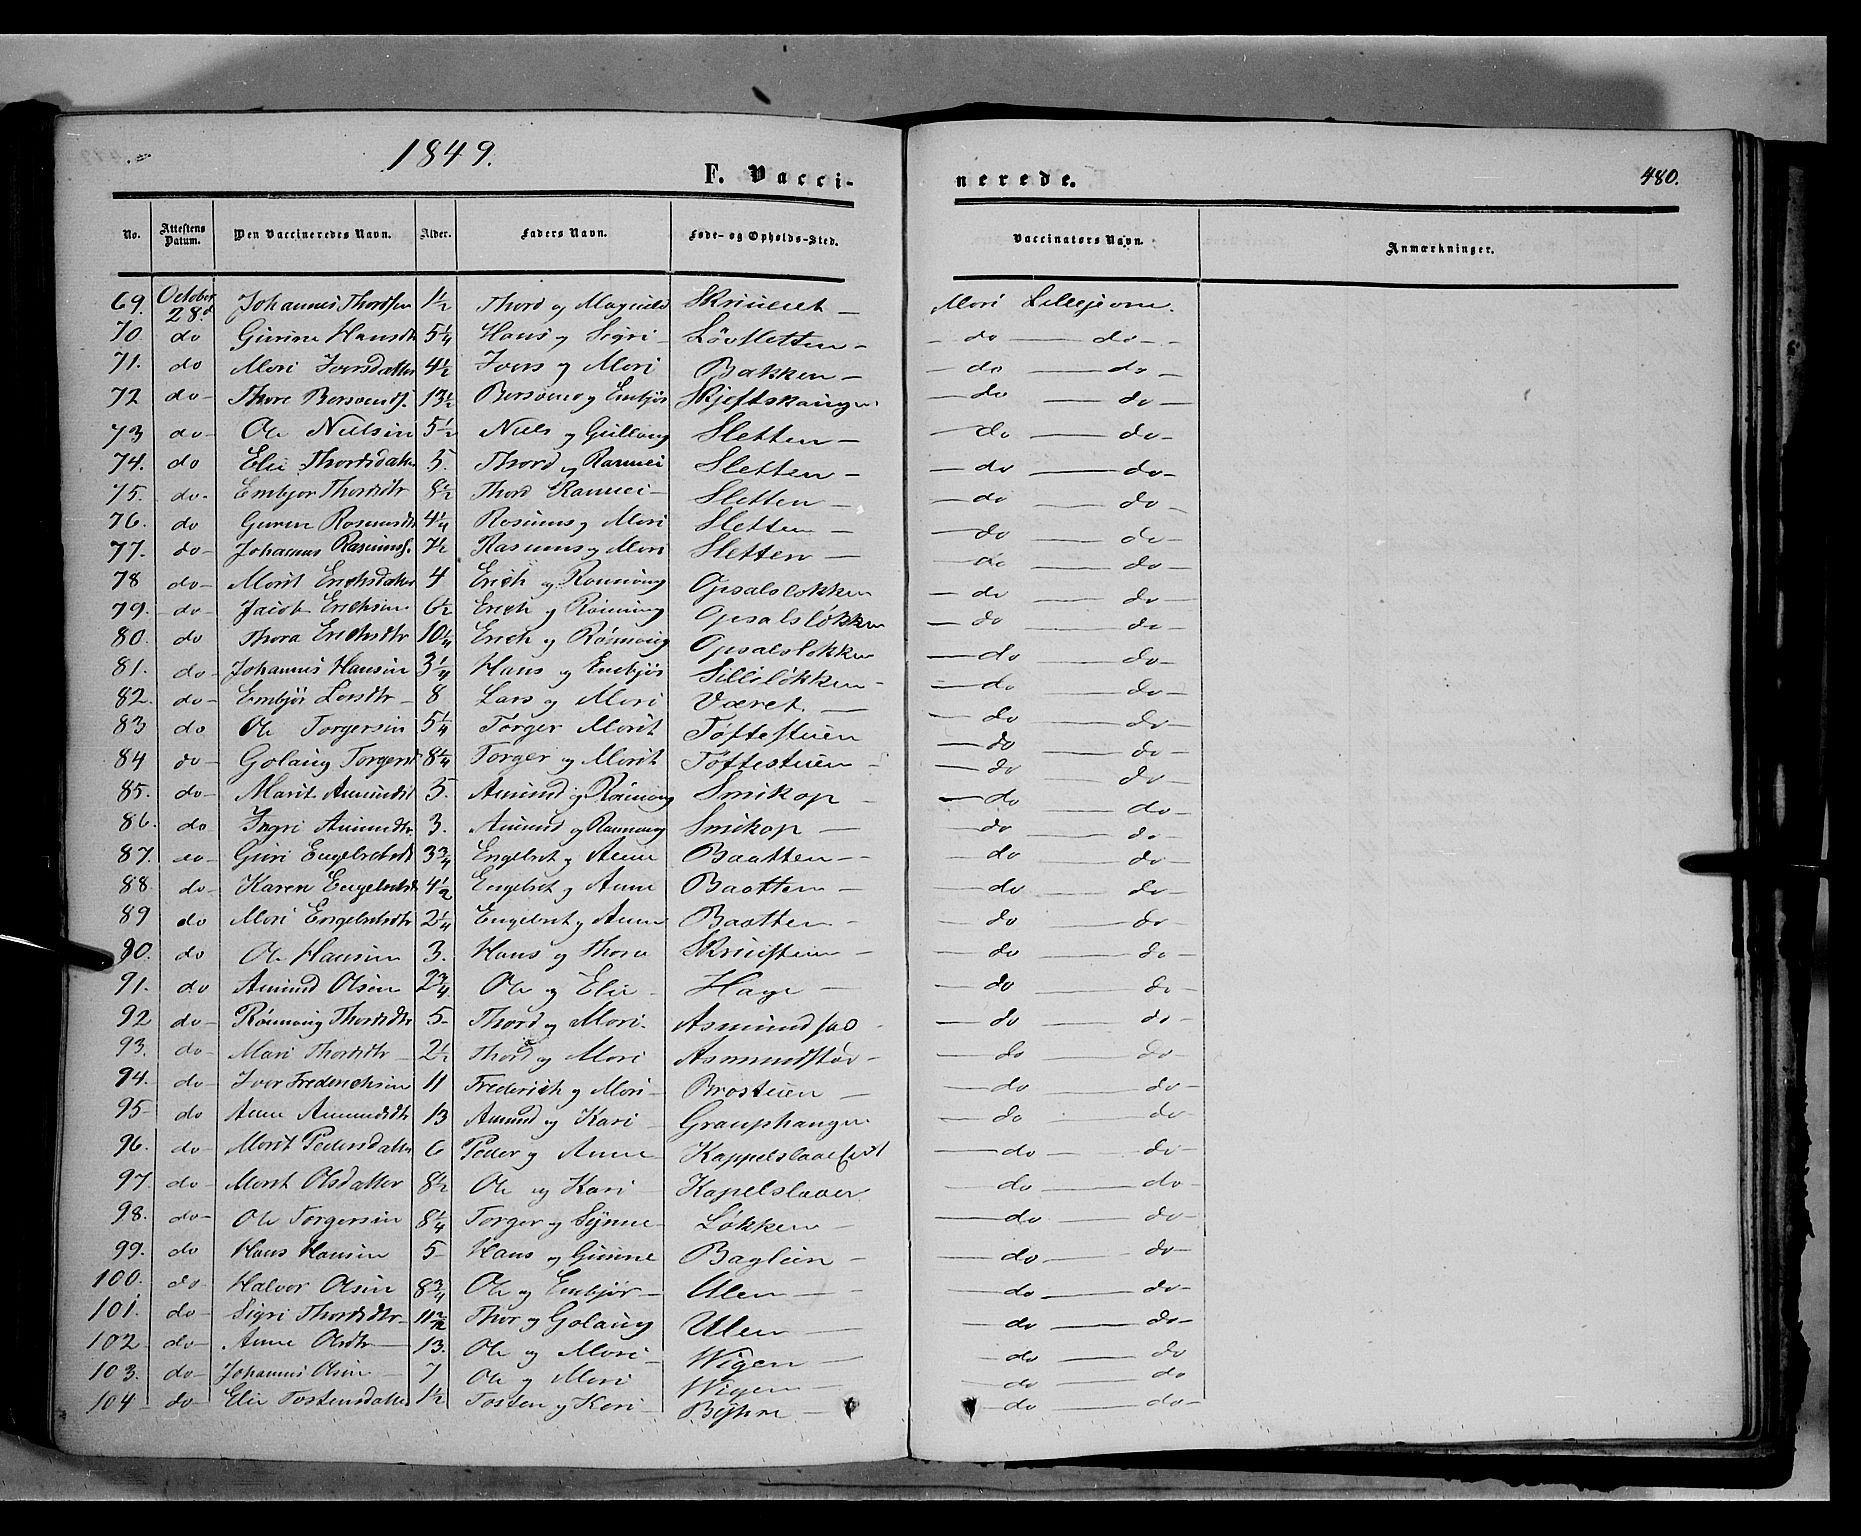 1849.
F. Vacci-
nerede.
480.
No. Attestens Datum. Den Vaccineredes Navn. Alder. Faders Navn. Føde- og Opholds-Sted. Vaccinators Navn. Anmærkninger.
69. October 28d Johannes Thordsen 1½ Thord og Magnild — Mari Lillejevne.
70. do Gunne Hansdtr 5¼ Hans og Sigri - Løvsletten - - do — do - -
71. do Mari Iversdatter 4½ Ivers og Mari Bakken — — do — do —
72 do - Thore Borsvends. 13½ Borsvend og Embjør — do — do —
73 do - Ole Nielsen 5½ Niels og Gullaug Sletten — — do — do-
74. do Elie Thordsdatter 5. Thord og Rannei Sletten — — do — do-
75. do- Embjør Thordsdtr 8½ Thord Rannei - Sletten — — do — do
76. do Guren Rasmusdtr 4¼ Rasmus og Mari Sletten — — do — do-
77. do- Johannes Rasmuss. 7½ Rasmus og Mari Sletten — — do — do-
78 do- Marit Erichsdatter 4 Erich og Rønnaug Opsalsløkken — do — do-
79. do- Jacob Erichsen 6½ Erich og Rønnaug Opsalsløkken — do — do-
80. do Thora Erichsdtr 10¼ Erich og Rønnaug Opsalsløkken — do — do-
81. do- Johannes Hansen 3¼ Hans og Embjør Sillisløkken - — do — do-
82. do- Embjør Larsdtr - 8 Lars og Mari Været. — — do — do-
83 do Ole Torgersen 5¼ Torger Marit Toftestuen — do — do-
84 do- Golaug Torgersd 8¼ Torger og Marit Toftestuen - — do — do -
85. do- Marit Amundsd 5. Amund og Rønnaug Smikop — — do — do -
86. do Ingri Amundsdtr 3. Amund og Rønnaug Smikop — — do — do-
87. do Guri Engebretsdt 3¾ Engebret og Anne Baatten — — do — do-
88. do- Karen Engebretsd 4½ Engebret og Anne Baatten — — do — do-
89 do Mari Engebretsdtr 2¼ Engebret og Anne Baatten — — do — do-
90. do Ole Hansen 3. Hans og Thora — do — do-
91. do Amund Olsen 2¾ Ole og Elie - Hage — — do — do-
92 do- Rønnaug Thordsdtr 5- Thord og Mari. — do — do-
93. do- Mari Thordsdtr - 2½ Thord og Mari — do — do-
94. do- Iver Frederichsen 11 Frederich og Mari - Brostuen — — do — do-
95- do Anne Amundsdtr 13 Amund og Kari - Grauphaugen — do — do
96. do- Marit Pedersdatter 6 Peder og Anne — do — do-
97. do- Marit Olsdatter 8½ Ole og Kari - Kapelslaaen — do — do-
98. do- Ole Torgersen 8¼ Torger og Synne - Løkken — — do — do-
99. do Hans Hansen 5- Hans og Gunne Baglien — — do — do-
100. do Halvor Olsen 8¾ Ole og Embjør - Ulen — — do — do-
101. do- Sigri Thordsdtr - Thor og Golaug Ulen — — do — do-
102 do- Anne Olsdtr - 13. Ole og Mari - Wigen — — do — do
103. do- Johannes Olsen - 7 Ole og Mari Wigen — — do — do
104 do- Elie Tostensdatter 1½ Tosten og Kari - Byhre — — do — do-